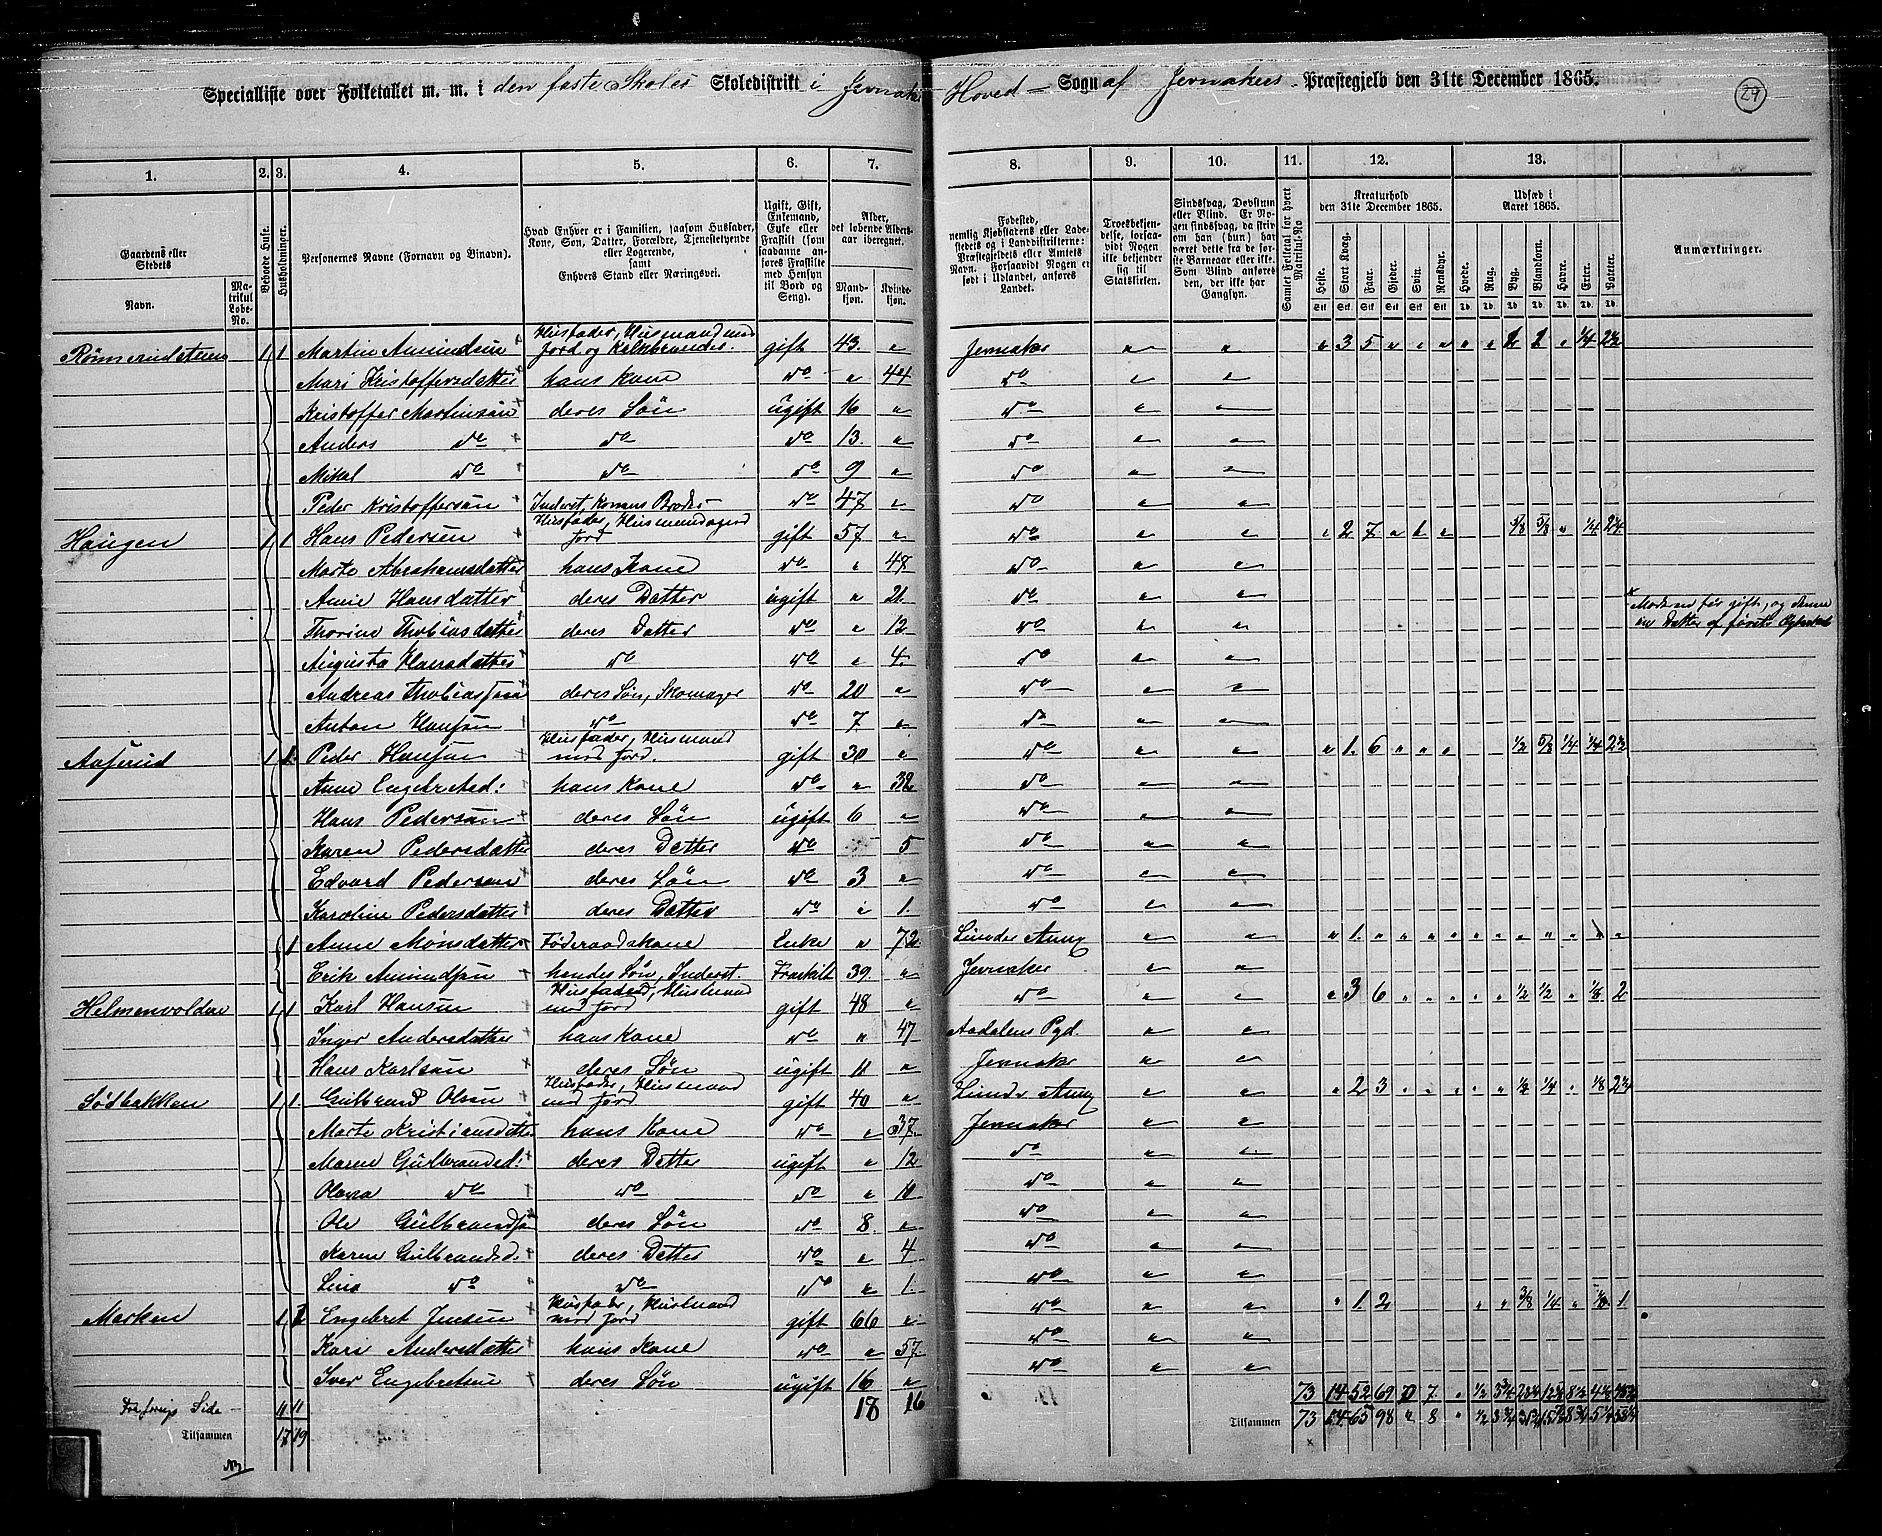 Specialliste over Folketallet m. m. i den faste Skoles Skoledistrikt i Jevnaker Hoved- Sogn af Jevnakers Præstegjeld den 31te December 1865.
29
1. 2. 3. 4. 5. 6. 7. 8. 9. 10. 11. 12. 13.
Gaardens eller Stedets
Navn.
Matrikul Løbe-No.
Beboede Huse.
Husholdninger.
Personernes Navne (Fornavn og Binavn).
Hvad Enhver er i Familien, saasom Husfader, Kone, Søn, Datter, Forældre, Tjenestetyende eller Logerende, samt Enhvers Stand eller Næringsvei.
Ugift, Gift, Enkemand, Enke eller Fraskilt (som saadanne anføres Fraskilte med Hensyn til Bord og Seng).
Alder, det løbende Aldersaar iberegnet.
Mandkjøn. Kvindekjøn.
Fødested, nemlig Kjøbstadens eller Ladestedets og i Landdistrikterne: Præstegjeldets eller Amtets Navn. Forsaavidt Nogen er født i Udlandet, anføres Landet.
Troesbekjendelse, forsaavidt Nogen ikke bekjender sig til Statskirken.
Sindssvag, Døvstum eller Blind. Er Nogen sindssvag, da skrives om han (hun) har været dette fra de første Barneaar eller ikke. Som Blind anføres den, der ikke har Gangsyn.
Samlet Folketal for hvert Matrikul-No
Kreaturhold den 31te December 1865.
Heste. Stort Kvæg. Faar. Gjeder. Svin. Rensdyr.
Udsæd i Aaret 1865.
Hvede. Rug. Byg. Blandkorn. Havre. Erter. Poteter.
Anmærkninger.
Husfader, Husmand med
1 1 Martin Amundsen Jord og Kalkbrænder. gift 43. " Jevnaker " 3 5 " " " " " 2 2 " 1/4
Mari Kristoffersdatter hans Kone do " 44 do
Kristoffer Martinsøn deres Søn ugift 16 " do
Anders do do do 13. " do
Mikal do do do 9 " do
Peder Kristoffersøn Inderst, Konens Broder do 47 " do
Haugen 1 1 Hans Pedersen Jord gift 57 " do " 2 7 " 1 " 5/8 5/8 " 1/4
Marte Abrahamsdatter hans Kone do " 48 do
Anne Hansdatter deres Datter ugift " 21. do
Thorine Thobiasdatter deres Datter do " 12 do
Augusta Hansdatter do do " 4. do
Andreas Thobiassen deres Søn, Skomager do 20 " do
Anton Hansen do do 7. " do
Husfader, Husmand
Aaserud 1 1 Peder Hansen med Jord. gift 30 " do " 1. 6 " " " 1/2 5/8 1/4 1/4
Anne Engebretsd: hans Kone do " 32 do
Hans Pedersøn deres Søn ugift 6 " do
Karen Pedersdatter deres Datter do 5 do
Edvard Pedersøn deres Søn do 3 " do
Karoline Pedersdatter deres Datter do " 1. do
1 Anne Mønsdatter Føderaadskone Enke " 72 " 1. " " " " " " " " " "
Erik Amundsen hendes Søn, Inderst. Fraskilt 39. " Jevnaker
Husmand
Helmenvolden 1 1 Karl Hansen med Jord gift 48 " do " 3 6 " " " " " 1/2 1/2 " 1/8 2
Inger Andersdatter hans Kone do " 47 Aadalens Pgd.
Hans Karlsøn deres Søn ugift 11 " Jevnaker
Husfader, Husmand
1 1. Gulbrand Olsen med Jord gift 40 " " 2 3 " " " " " 1/2 1/4 " 1/8
Marte Kristiansdatter hans Kone do " 37. Jevnaker
Maren Gulbrandsd: deres Datter ugift " 12 do
do do do " 10 do
Ole Gulbrandsøn deres Søn do 8. " do
Karen Gulbrandsd. deres Datter do " 4 do
Lina do do do " 1. do
Husfader, Husmand
Marken 1 1 Engebret Jensen med Jord gift 66 " do " 1 2 " " 3/8 1/4 " 1
Kari Andersdatter hans Kone do " 57 do
Iver Engebretsen deres Søn ugift 16 " do
Fra forrige Side 11 11 18 16 73 14 52 69
Tilsammen 17 19 Tilsammen 73 14 65 98 " 8